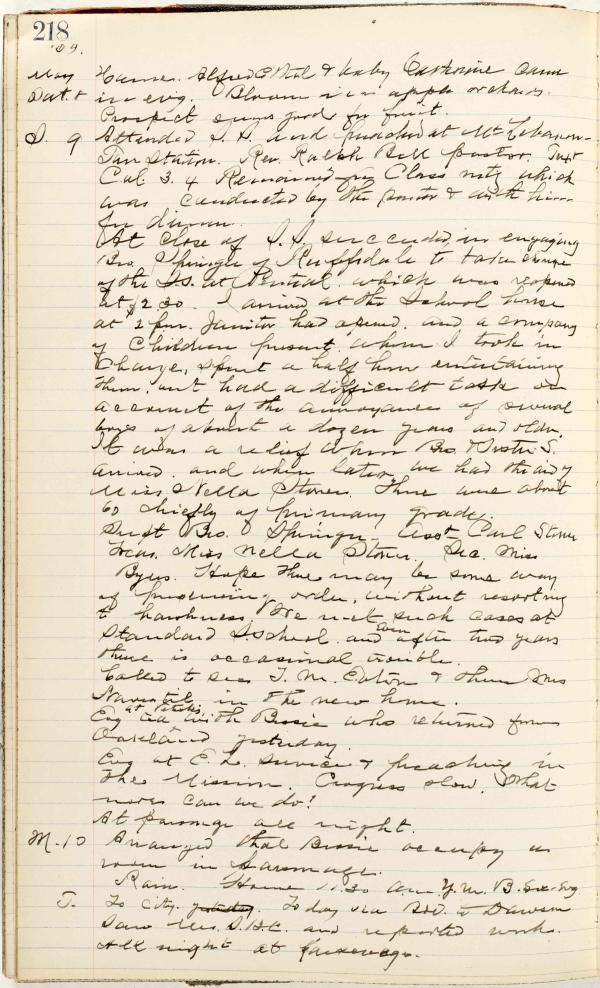 218
'09.
May Home. Alfred Ethel & baby Catherine came
Sat. 8 in evg. Bloom is in apple orchards.
Prospect seems good for fruit.
S. 9 Attended S.S. and preached at Mt Lebanon
Station. Rev. Ralph Bell pastor. Text
Col. 3. 4 Remained for Class mtg which
was conducted by the pastor & with him
for dinner.
At close of S.S. succeeded in engaging
Bro. Springer of Ruffsdale to take charge
of the S.S. at Central which was reopened
at 2.30. I arrived at the School house
at 2 p.m. Janitor had opened. and a company
of Children present whom I took in
Charge, spent a half hour entertaining
them, but had a difficult task on
account of the annoyance of several
boys of about a dozen years and older.
It was a relief when Bro. S.
arrived. and when later we had the aid of
Miss Nella Stoner. There were about
60 chiefly of primary grade.
Supt Bro. Springer - Asst Carl Stoner
Treas. Miss Nella Stoner. Sec. Miss
Byers. Hope there may be some way
of preserving order, without resorting
to harshness. We met such cases at
Standard S.school. and even after two years
there is occasional trouble.
Called to see T. M. Eaton & there Mrs
in the new home.
Evg tea at with Bessie who returned from
Oakland yesterday.
Evg at E. L. service & preaching in
the Mission. Progress slow. What
more can we do!
At parsonage all night.
M. 10 Arranged that Bessie occupy a
room in parsonage.
Rain. Home 11.30 a.m. Y.M.B. Soc. Evg.
T. To city. yesterday. Today via to Dawson
Saw and reported work.
All night at parsonage.